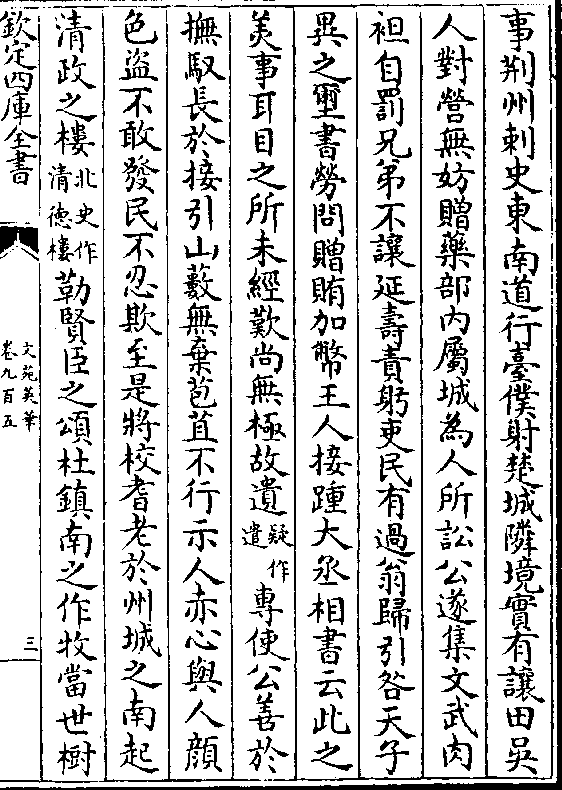 事荆州刺史東南道行臺僕射楚城隣境實有讓田吳
人對營無妨贈藥部内屬城為人所訟公遂集文武肉
袒自罰兄弟不讓延壽責躬吏民有過翁歸引咎天子
異之璽書勞問贈賄加幣王人接踵大丞相書云此之
美事耳目之所未經歎尚無極故遺疑作遣專使公善於
撫馭長於接引山藪無棄苞苴不行示人赤心與人顔
色盜不敢發民不忍欺至是將校耆老於州城之南起
清政之樓北史作清德樓勒賢臣之頌杜鎮南之作牧當世樹
欽定四庫全書
文苑英華
卷九百五
三